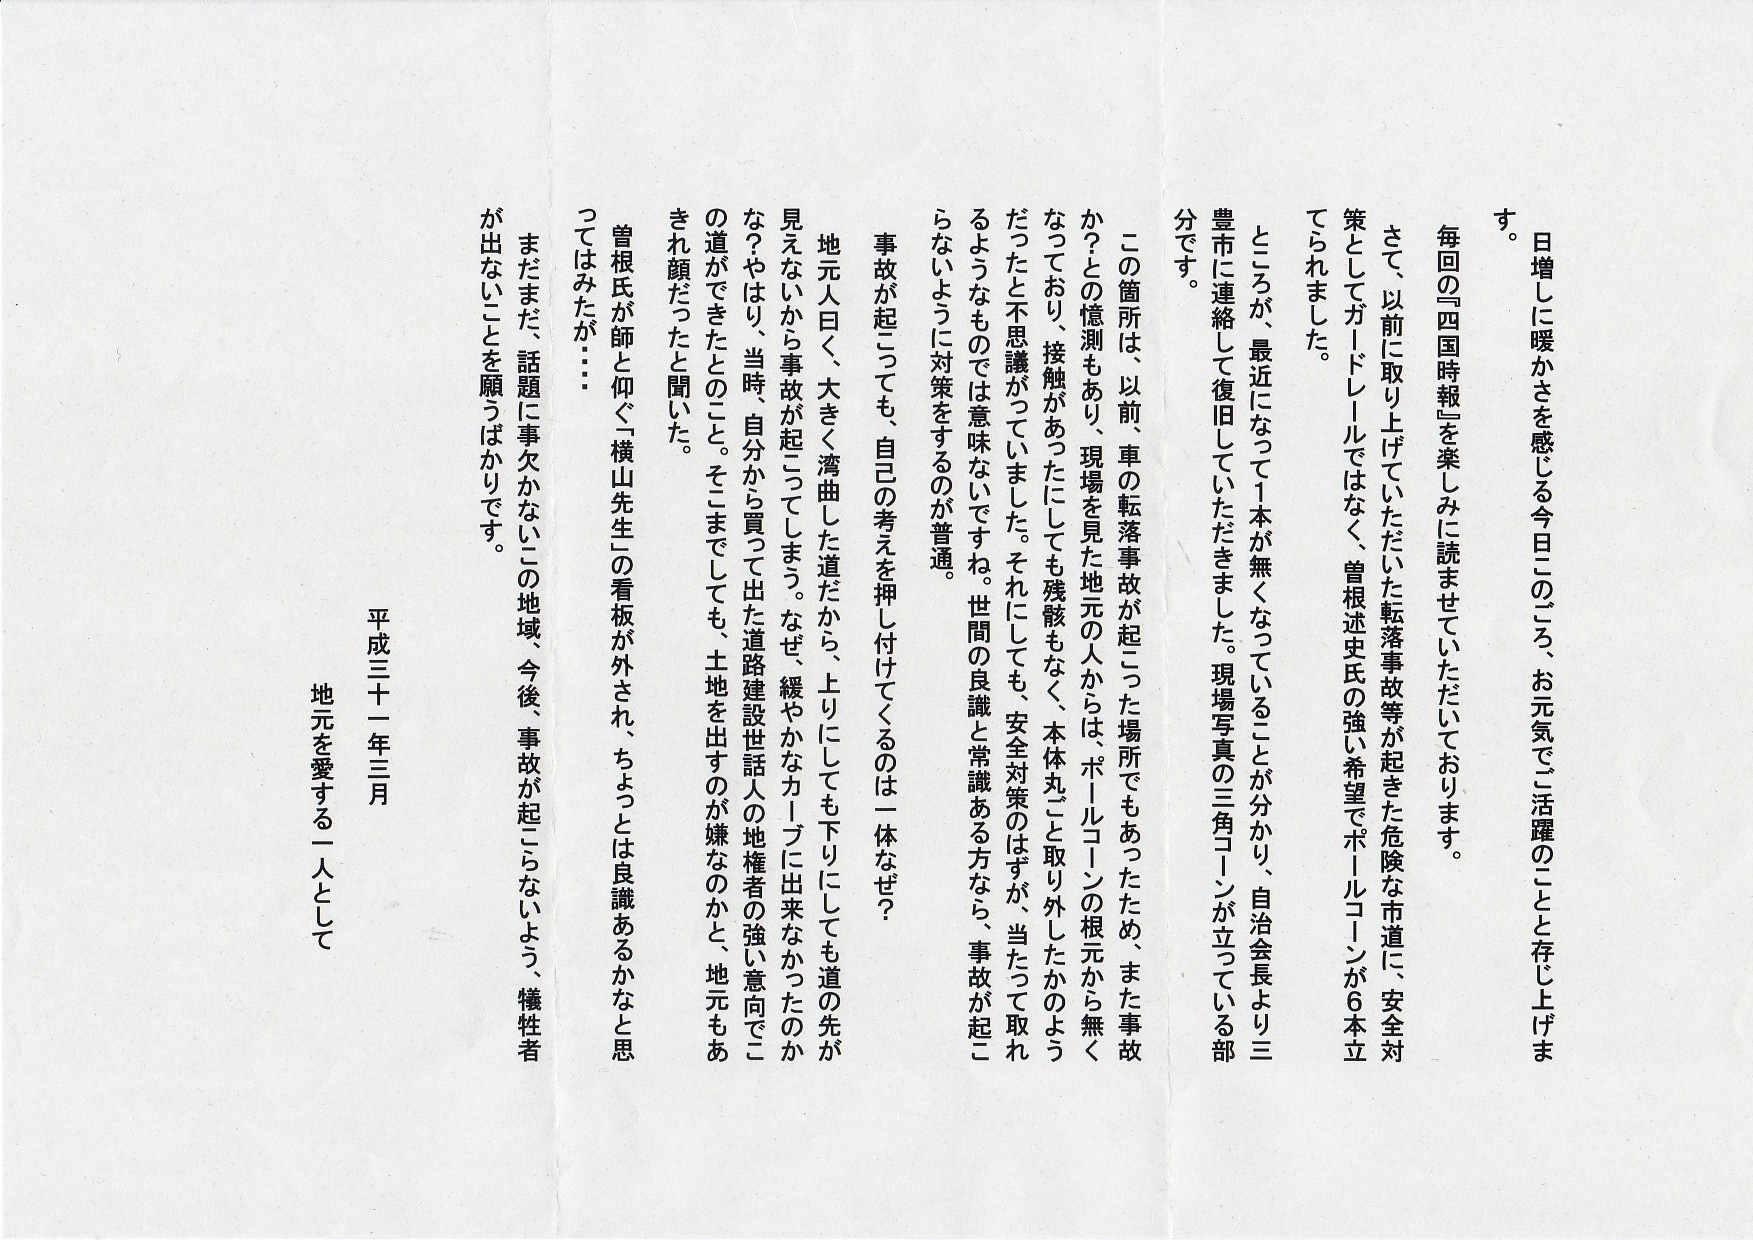 日増しに暖かさを感じる今日このごろ、お元気でご活躍のことと存じ上げま
す。
毎回の『四国時報』を楽しみに読ませていただいております。
さて、以前に取り上げていただいた転落事故等が起きた危険な市道に、安全対
策としてガードレールではなく、曽根述史氏の強い希望でポールコーンが６本立
てられました。
ところが、最近になって１本が無くなっていることが分かり、自治会長より三
豊市に連絡して復旧していただきました。現場写真の三角コーンが立っている部
分です。
この箇所は、以前、車の転落事故が起こった場所でもあったため、また事故
か？との憶測もあり、現場を見た地元の人からは、ポールコーンの根元から無く
なっており、接触があったにしても残骸もなく、本体丸ごと取り外したかのよう
だったと不思議がっていました。それにしても、安全対策のはずが、当たって取れ
るようなものでは意味ないですね。世間の良識と常識ある方なら、事故が起こ
らないように対策をするのが普通。
事故が起こっても、自己の考えを押し付けてくるのは一体なぜ？
地元人曰く、大きく湾曲した道だから、上りにしても下りにしても道の先が
見えないから事故が起こってしまう。なぜ、緩やかなカーブに出来なかったのか
な？やはり、当時、自分から買って出た道路建設世話人の地権者の強い意向でこ
の道ができたとのこと。そこまでしても、土地を出すのが嫌なのかと、地元もあ
きれ顔だったと聞いた。
曽根氏が師と仰ぐ「横山先生」の看板が外され、ちょっとは良識あるかなと思
ってはみたが・・・・
まだまだ、話題に事欠かないこの地域、今後、事故が起こらないよう、犠牲者
が出ないことを願うばかりです。
平成三十一年三月
地元を愛する一人として